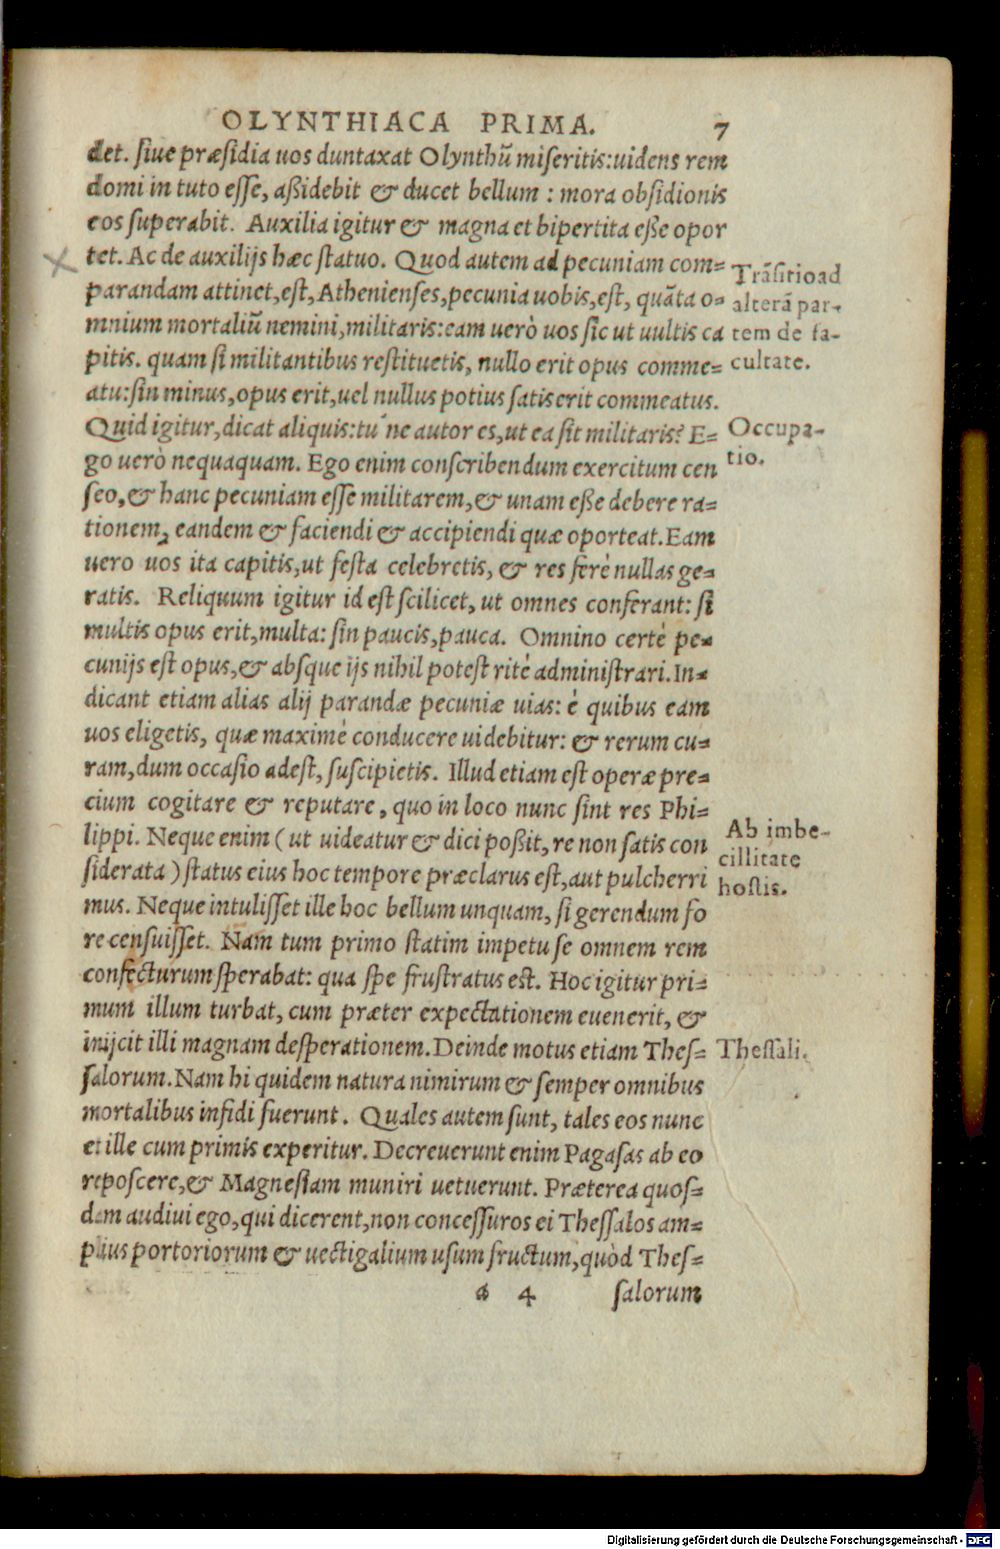 OLYNTHIACA PRIMA. 7
det. siue præsidia uos duntaxat Olynthũ miseritis: uidens rem
domi in tuto esse, aßidebit & ducet bellum: mora obsidionis
eos superabit. Auxilia igitur & magna et bipertita eße opor
tet. Ac de auxilijs hæc statuo. Quod autem ad pecuniam com=
parandam attinet, est, Athenienses, pecunia uobis, est, quãta o=
mnium mortaliũ nemini, militaris: eam uerò uos sic ut uultis ca
pitis. quam si militantibus restituetis, nullo erit opus comme=
atu: sin minus, opus erit, uel nullus potius satis erit commeatus.
Quid igitur, dicat aliquis: tu´ne autor es, ut ea sit militaris? E=
go uerò nequaquam. Ego enim conscribendum exercitum cen
seo, & hanc pecuniam esse militarem, & unam eße debere ra=
tionem, eandem & faciendi & accipiendi quæ oporteat. Eam
uero uos ita capitis, ut festa celebretis, & res ferè nullas ge=
ratis. Reliquum igitur id est scilicet, ut omnes conferant: si
multis opus erit, multa: sin paucis, pauca. Omnino certè pe=
cunijs est opus, & absque ijs nihil potest ritè administrari. In=
dicant etiam alias alij parandæ pecuniæ uias: è quibus eam
uos eligetis, quæ maximè conducere uidebitur: & rerum cu=
ram, dum occasio adest, suscipietis. Illud etiam est operæ pre=
cium cogitare & reputare, quo in loco nunc sint res Phi=
lippi. Neque enim (ut uideatur & dici poßit, re non satis con
siderata) status eius hoc tempore præclarus est, aut pulcherri
mus. Neque intulisset ille hoc bellum unquam, si gerendum fo
re censuisset. Nam tum primo statim impetu se omnem rem
confecturum sperabat: qua spe frustratus est. Hoc igitur pri=
mum illum turbat, cum præter expectationem euenerit, &
inijcit illi magnam desperationem. Deinde motus etiam Thes=
salorum. Nam hi quidem natura nimirum & semper omnibus
mortalibus infidi fuerunt. Quales autem sunt, tales eos nunc
et ille cum primis experitur. Decreuerunt enim Pagasas ab eo
reposcere, & Magnesiam muniri uetuerunt. Præterea quos=
dam audiui ego, qui dicerent, non concessuros ei Thessalos am=
plius portoriorum & uectigalium usum fructum, quòd Thes=
a 4 salorum
Trãsitio ad
alterã par-
tem de fa-
cultate.
Occupa-
tio.
Ab imbe-
cillitate
hostis.
Thessali.
Digitalisierung gefördert durch die Deutsche Forschungsgemeinschaft - DFG